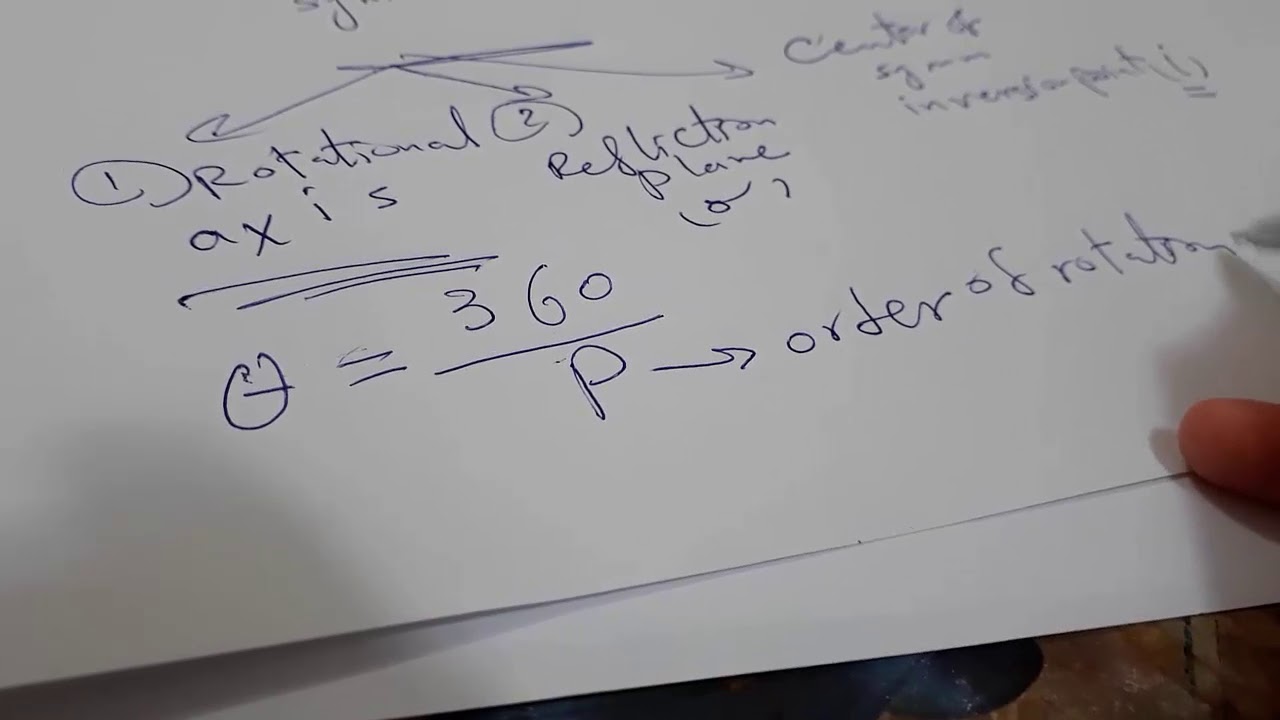 sym
Center of
symm
inversion point (i)
1) Rotational
axis
2
Reflection
plane
(σ)
θ = 360
P → order of rotation